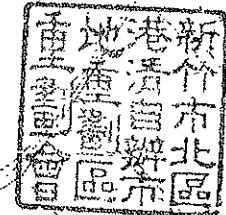 新竹市北區
港湳自辦市
地重劃區
重劃會